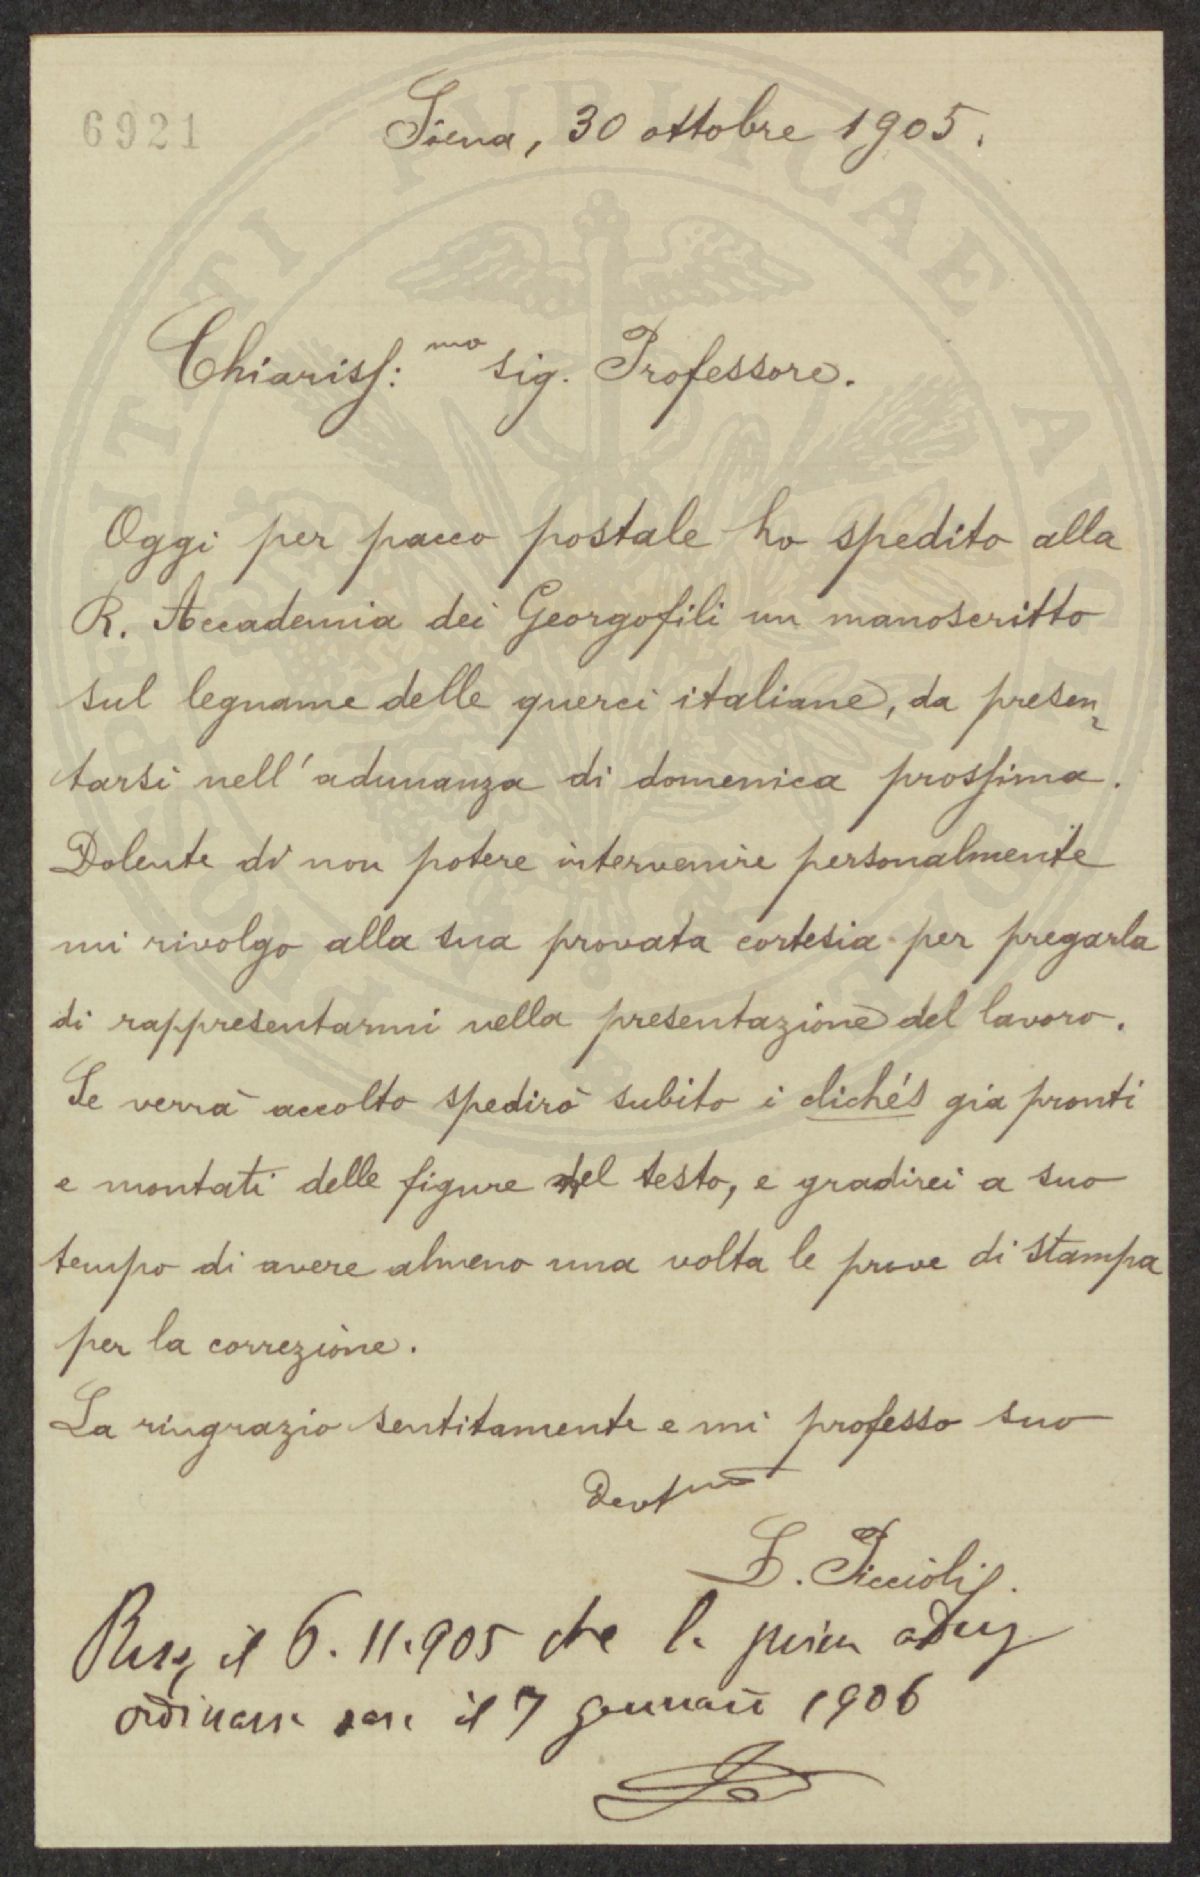 6921
Siena, 30 ottobre 1905.
Chiariss:mo sig. Professore.
Oggi per pacco postale ho spedito alla
R. Accademia dei Georgofili un manoscritto
sul legname delle querci italiane, da presen-
tarsi nell'adunanza di domenica prossima.
Dolente di non potere intervenire personalmente
mi rivolgo alla sua provata cortesia per pregarla
di rappresentarmi nella presentazione del lavoro.
Se verrà accolto spedirò subito i clichés già pronti
e montati delle figure del testo, e gradirei a suo
tempo di avere almeno una volta le prove di stampa
per la correzione.
La ringrazio sentitamente e mi professo suo
Devmo
L. Piccioli.
il 6.11.905 che la prima
il 7 gennaio 1906
PROSPERITATI PVBLICAE AVGENDAE